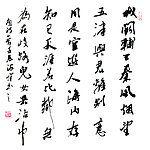 城闕輔三秦風煙望
五津與君離別意
同是宦遊人海內存
知己天涯若比鄰無
為在歧路兒女共沾巾